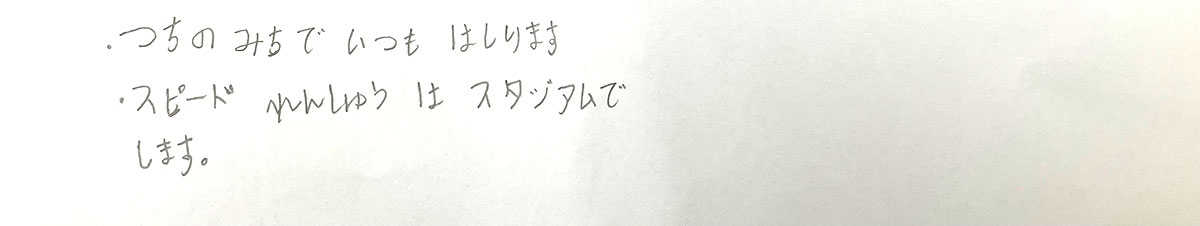 ・つちの みちで いつも はしります
・スピード れんしゅう は スタジアムで
します。